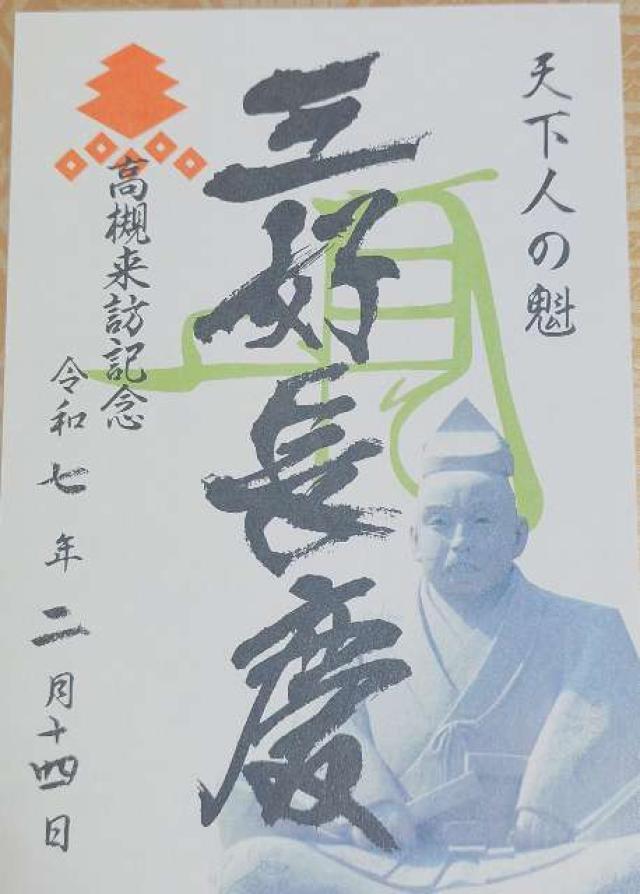 天下人の魁
三好長慶
高槻来訪記念
令和七年二月十四日